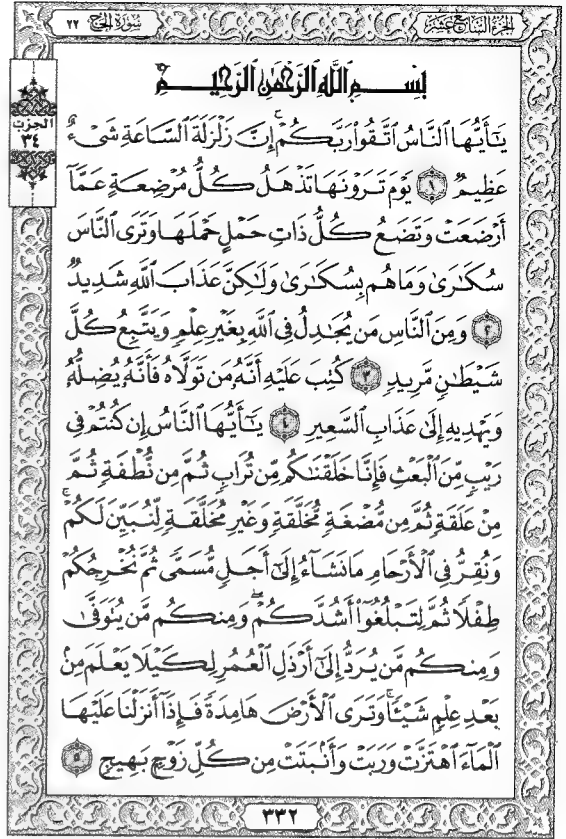 الجزء السابع عشر
سورة الحج ٢٢
الحزب
٣٤
بِسْمِ ٱللَّهِ ٱلرَّحْمَٰنِ ٱلرَّحِيمِ
يَٰٓأَيُّهَا ٱلنَّاسُ ٱتَّقُوا۟ رَبَّكُمْ ۚ إِنَّ زَلْزَلَةَ ٱلسَّاعَةِ شَىْءٌ
عَظِيمٌ ١ يَوْمَ تَرَوْنَهَا تَذْهَلُ كُلُّ مُرْضِعَةٍ عَمَّآ
أَرْضَعَتْ وَتَضَعُ كُلُّ ذَاتِ حَمْلٍ حَمْلَهَا وَتَرَى ٱلنَّاسَ
سُكَٰرَىٰ وَمَا هُم بِسُكَٰرَىٰ وَلَٰكِنَّ عَذَابَ ٱللَّهِ شَدِيدٌ
٢ وَمِنَ ٱلنَّاسِ مَن يُجَٰدِلُ فِى ٱللَّهِ بِغَيْرِ عِلْمٍ وَيَتَّبِعُ كُلَّ
شَيْطَٰنٍ مَّرِيدٍ ٣ كُتِبَ عَلَيْهِ أَنَّهُۥ مَن تَوَلَّاهُ فَأَنَّهُۥ يُضِلُّهُۥ
وَيَهْدِيهِ إِلَىٰ عَذَابِ ٱلسَّعِيرِ ٤ يَٰٓأَيُّهَا ٱلنَّاسُ إِن كُنتُمْ فِى
رَيْبٍ مِّنَ ٱلْبَعْثِ فَإِنَّا خَلَقْنَٰكُم مِّن تُرَابٍ ثُمَّ مِن نُّطْفَةٍ ثُمَّ
مِنْ عَلَقَةٍ ثُمَّ مِن مُّضْغَةٍ مُّخَلَّقَةٍ وَغَيْرِ مُخَلَّقَةٍ لِّنُبَيِّنَ لَكُمْ ۚ
وَنُقِرُّ فِى ٱلْأَرْحَامِ مَا نَشَآءُ إِلَىٰٓ أَجَلٍ مُّسَمًّى ثُمَّ نُخْرِجُكُمْ
طِفْلًا ثُمَّ لِتَبْلُغُوٓا۟ أَشُدَّكُمْ ۖ وَمِنكُم مَّن يُتَوَفَّىٰ
وَمِنكُم مَّن يُرَدُّ إِلَىٰٓ أَرْذَلِ ٱلْعُمُرِ لِكَيْلَا يَعْلَمَ مِنۢ
بَعْدِ عِلْمٍ شَيْـًٔا ۚ وَتَرَى ٱلْأَرْضَ هَامِدَةً فَإِذَآ أَنزَلْنَا عَلَيْهَا
ٱلْمَآءَ ٱهْتَزَّتْ وَرَبَتْ وَأَنۢبَتَتْ مِن كُلِّ زَوْجٍۭ بَهِيجٍ ٥
٣٣٢